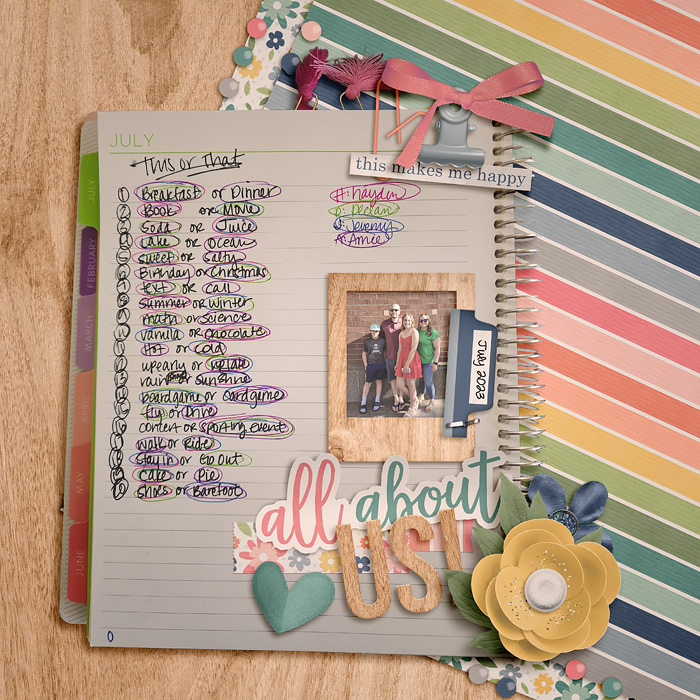 JULY
This or That
this makes me happy
1 Breakfast or Dinner
2 Book or Movie
3 Soda or Juice
4 Lake or Ocean
5 sweet or salty
6 Birthday or Christmas
7 text or call
8 summer or winter
9 math or science
vanilla or chocolate
Hot or cold
upearly or uplate
rain or sunshine
boardgame or cardgame
fly or Drive
concert or sporting event
walk or Ride
Stay in or Go Out
cake or Pie
shoes or Barefoot
H: hayden
D: Declan
J: Jeremy
A: Amie
JULY
FEBRUARY
MARCH
APRIL
MAY
JUNE
July 2023
all about
US!
0